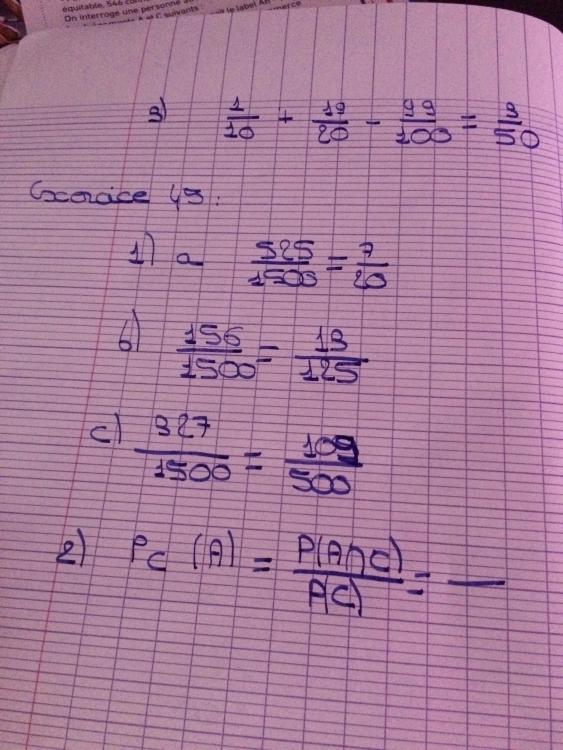 équitable, 546 con
On interroge une personne au
A et C suivants
le label AB
merce
3) 1/10 + 19/20 - 99/100 = 3/50
Exercice 49 :
1) a 525/1500 = 7/20
b) 156/1500 = 13/125
c) 327/1500 = 109/500
2) P_C (A) = P(A∩C)/P(C) = —